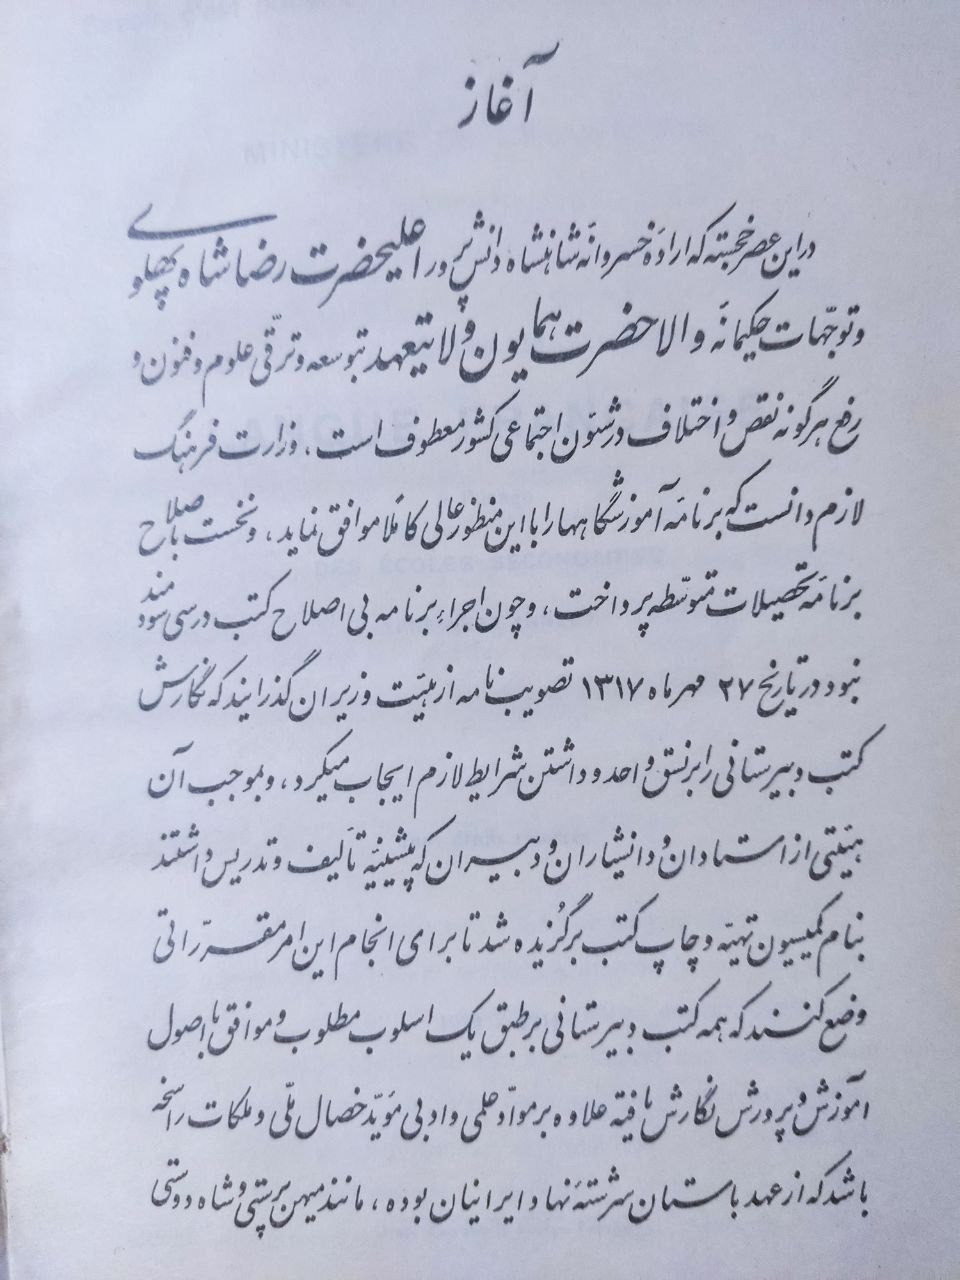 آغاز
دراین عصر خجسته که ارادهٔ خسروانهٔ شاهنشاه دانش پرور اعلیحضرت رضا شاه پهلوی
و توجّهات حکیمانهٔ والاحضرت همایون ولایتعهد بتوسعه و ترقّی علوم و فنون و
رفع هرگونه نقص و اختلاف در شئون اجتماعی کشور معطوف است، وزارت فرهنگ
لازم دانست که برنامهٔ آموزشگاهها را با این منظور عالی کاملاً موافق نماید، و نخست باصلاح
برنامهٔ تحصیلات متوسّطه پرداخت، و چون اجراء برنامه بی اصلاح کتب درسی سودمند
نبود در تاریخ ۲۷ مهر ماه ۱۳۱۷ تصویب نامه از هیئت وزیران گذرانید که نگارش
کتب دبیرستانی را بر نسق واحد و داشتن شرایط لازم ایجاب میکرد، و بموجب آن
هیئتی از استادان و دانشیاران و دبیران که پیشینهٔ تألیف و تدریس داشتند
بنام کمیسیون تهیّه و چاپ کتب برگزیده شد تا برای انجام این امر مقرّراتی
وضع کنند که همه کتب دبیرستانی بر طبق یک اسلوب مطلوب و موافق با اصول
آموزش و پرورش نگارش یافته علاوه بر موادّ علمی و ادبی مؤیّد خصال ملّی و ملکات راسخه
باشد که از عهد باستان سرشتهٔ نهاد ایرانیان بوده، مانند میهن پرستی و شاه دوستی